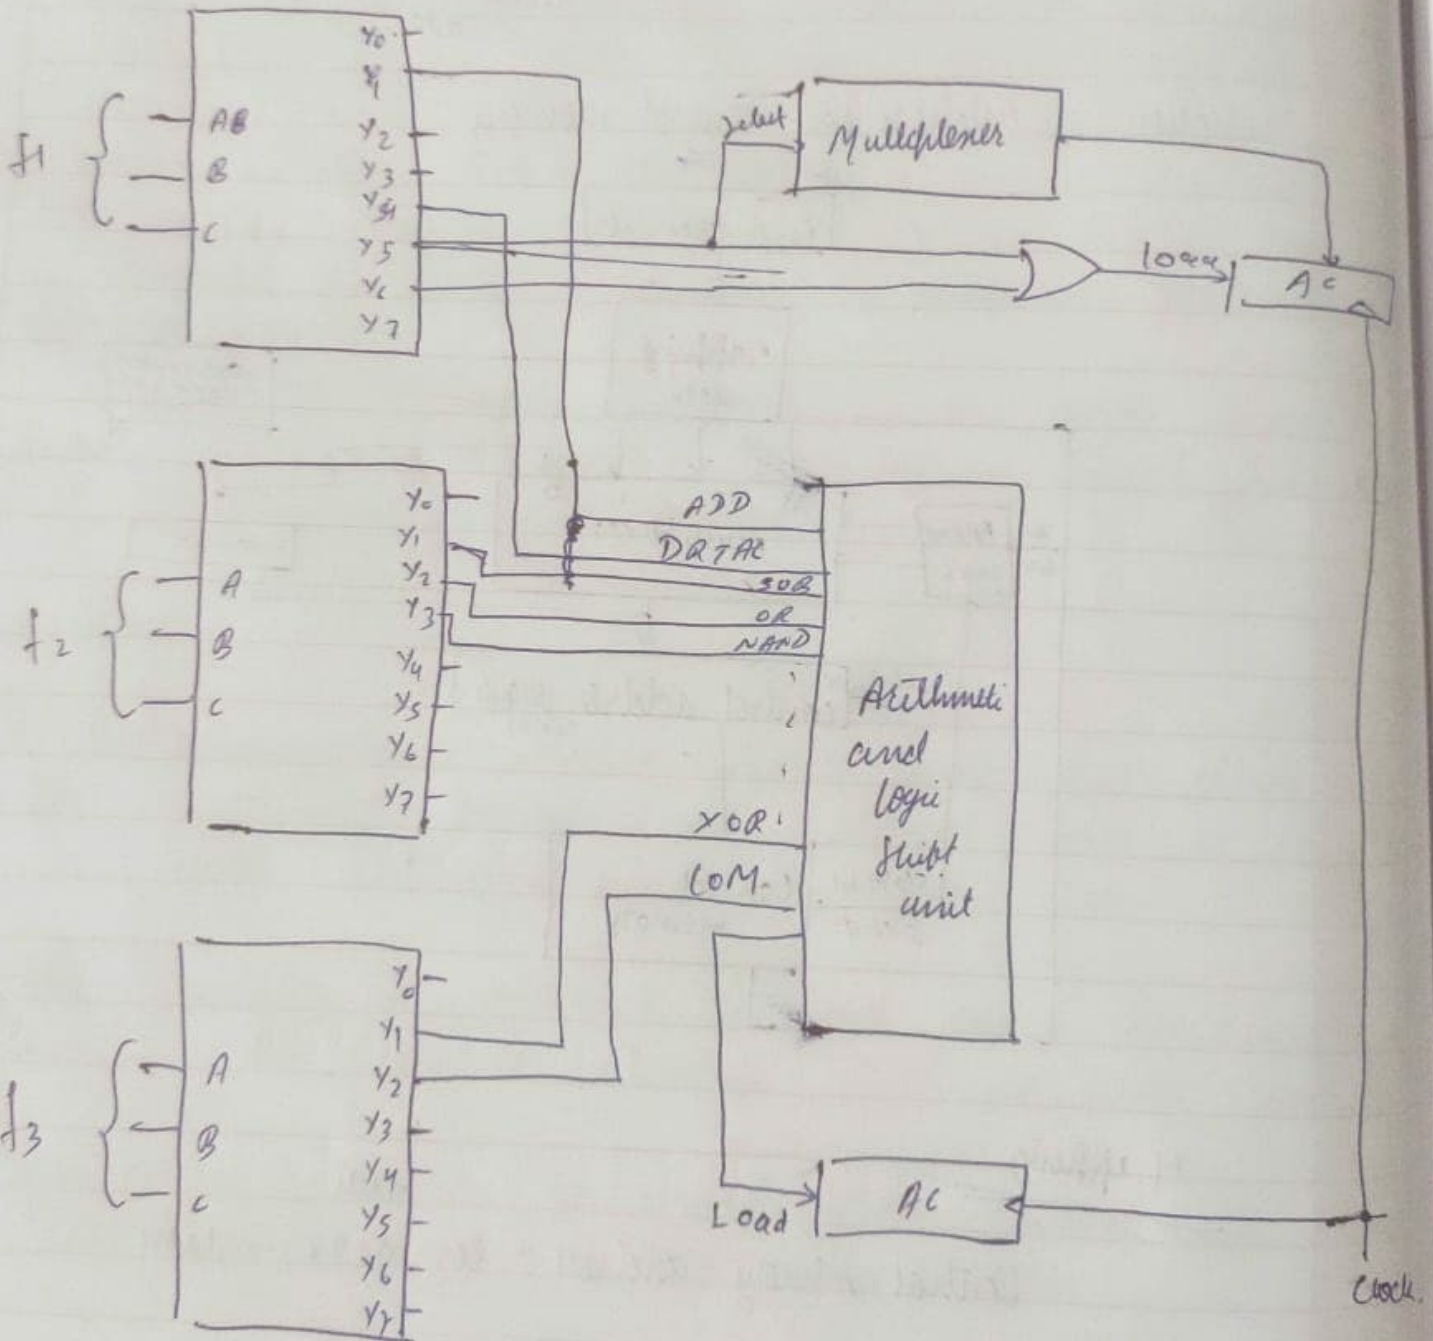 f1
AB
B
C
Y0
Y1
Y2
Y3
Y4
Y5
Y6
Y7
select
Multiplexer
Load
AC
f2
A
B
C
Y0
Y1
Y2
Y3
Y4
Y5
Y6
Y7
ADD
DRTAC
SOR
OR
NAND
XOR
COM
Arithmetic
and
logic
shift
unit
f3
A
B
C
Y0
Y1
Y2
Y3
Y4
Y5
Y6
Y7
Load
AC
Clock.